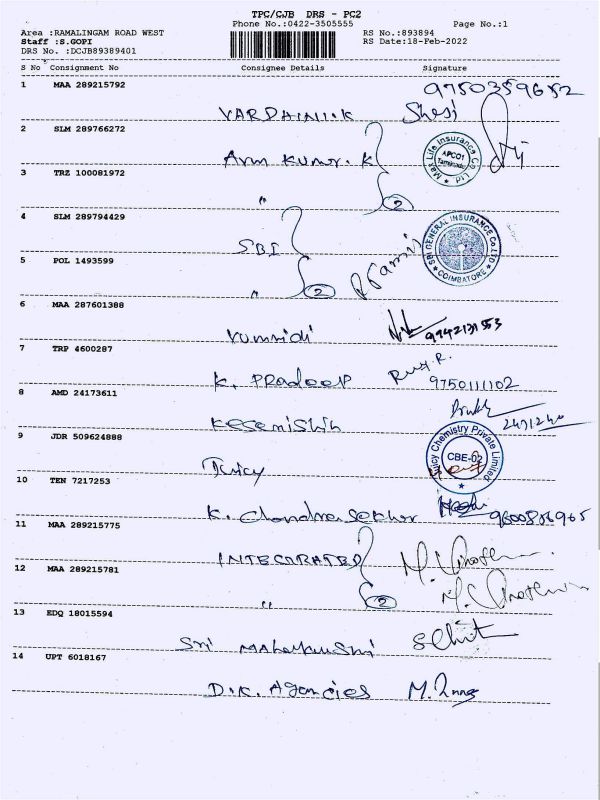 TPC/CJB DRS - PC2
Phone No.:0422-3505555
Page No.:1
Area :RAMALINGAM ROAD WEST
RS No.:893894
Staff :S.GOPI
RS Date:18-Feb-2022
DRS No. :DCJB89389401
S No Consignment No Consignee Details Signature
1 MAA 289215792
9750359652
VARDHINI.K Shesi
2 SLM 289766272
Arun Kumar.K
Max Life Insurance Co. Ltd
APCO1
Tamilnadu
3 TRZ 100081972
" 2
4 SLM 289794429
SBI
SBI GENERAL INSURANCE Co. LTD.
COIMBATORE
5 POL 1493599
" 2
6 MAA 287601388
Vummidi 9942131553
7 TRP 4600287
K. Pradeep 9750111102
8 AMD 24173611
9 JDR 509624888
Juicy
Juicy Chemistry Private Limited
CBE-02
10 TEN 7217253
K. Chandra Sekhar
11 MAA 289215775
INTEGRATED
12 MAA 289215781
" 2
13 EDQ 18015594
Sri
14 UPT 6018167
D.K. Agencies